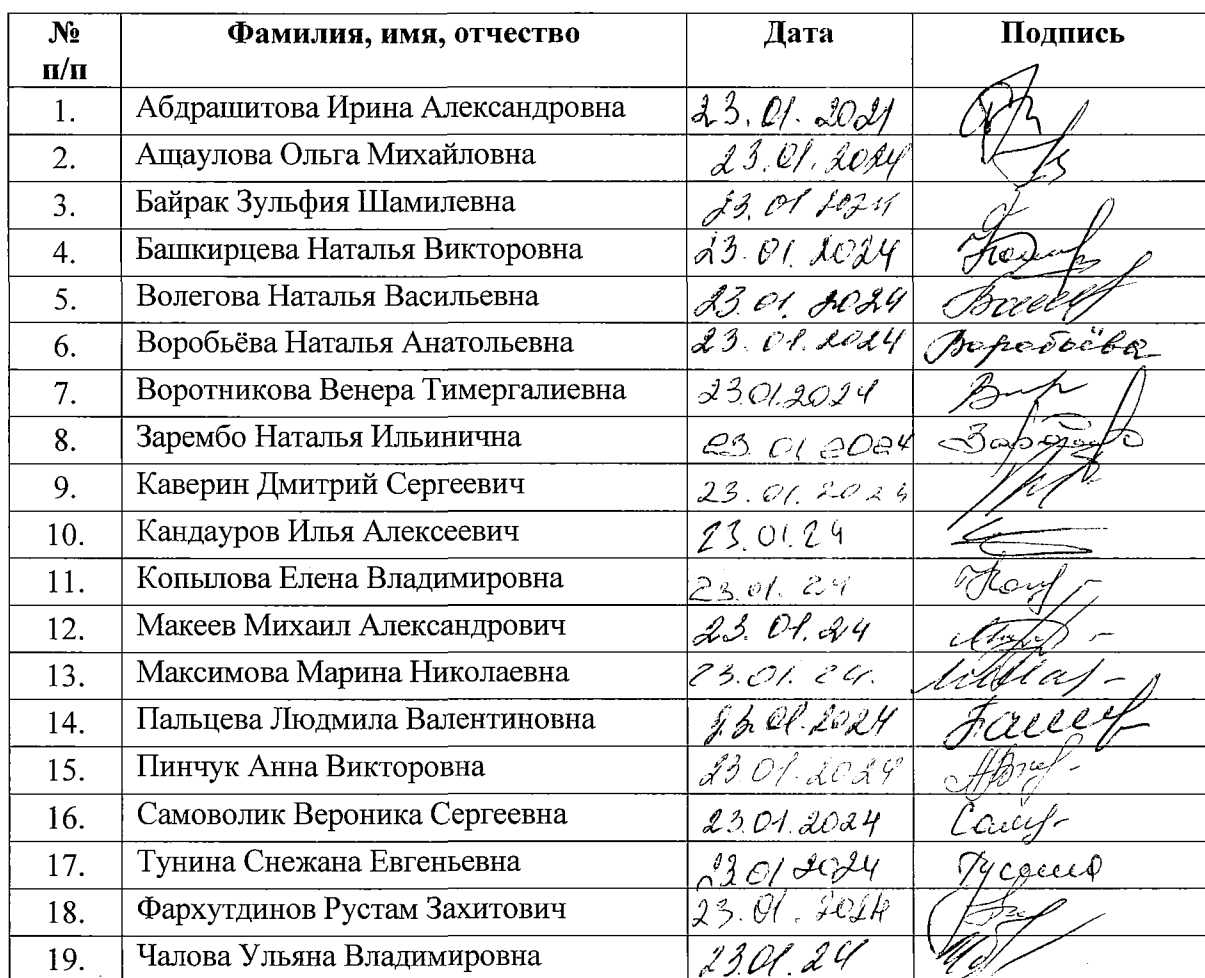 № п/п Фамилия, имя, отчество Дата Подпись
1. Абдрашитова Ирина Александровна 23.01.2024
2. Ащаулова Ольга Михайловна 23.01.2024
3. Байрак Зульфия Шамилевна 23.01 2024
4. Башкирцева Наталья Викторовна 23.01.2024
5. Волегова Наталья Васильевна 23.01.2024
6. Воробьёва Наталья Анатольевна 23.01.2024 Воробьёва
7. Воротникова Венера Тимергалиевна 23.01.2024
8. Зарембо Наталья Ильинична 23.01 2024
9. Каверин Дмитрий Сергеевич 23.01.2024
10. Кандауров Илья Алексеевич 23.01.24
11. Копылова Елена Владимировна 23.01.24
12. Макеев Михаил Александрович 23.01.24
13. Максимова Марина Николаевна 23.01.24.
14. Пальцева Людмила Валентиновна 23.01.2024
15. Пинчук Анна Викторовна 23.01.2024
16. Самоволик Вероника Сергеевна 23.01.2024
17. Тунина Снежана Евгеньевна 23.01 2024
18. Фархутдинов Рустам Захитович 23.01.2024
19. Чалова Ульяна Владимировна 23.01.24